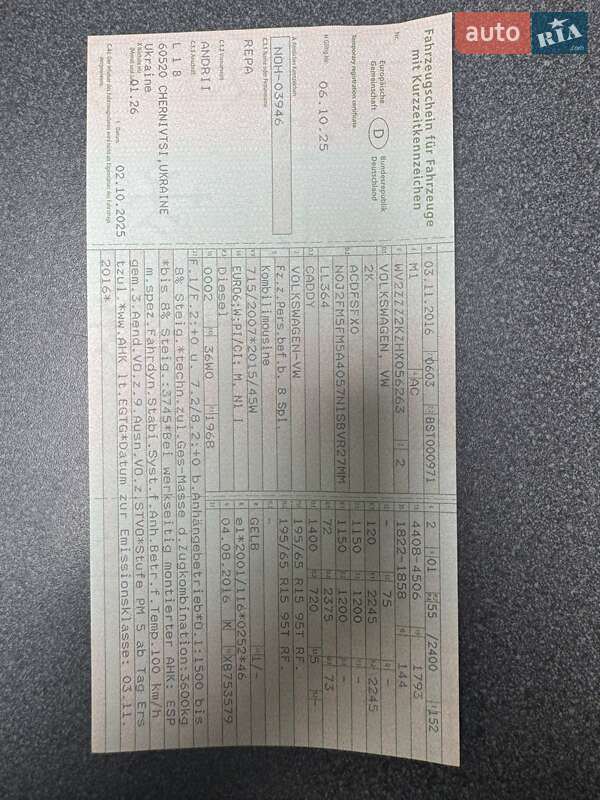 auto RIA .com
Fahrzeugschein für Fahrzeuge
mit Kurzzeitkennzeichen
Nr.
Europäische
Gemeinschaft
D
Bundesrepublik
Deutschland
Temporary registration certificate
06.10.25
NOH-03946
REPA
ANDRII
L 18
60520 CHERNIVTSI,UKRAINE
Ukraine
01.26
02.10.2025
03.11.2016 0603 BST000971
M1 AC
WV2ZZZ2KZHX056263 2
VOLKSWAGEN, VW
2K
ACDFSFX0
N0J2FM5FM5A4057N1S8VR27MM
LL364
CADDY
VOLKSWAGEN-VW
Fz.z.Pers.bef.b. 8 Spl
Kombilimousine
715/2007*2015/45W
EURO6;W;PI/CI; M, N1 I
Diesel
0002 36W0 1968
2 01 55 /2400 152
4408-4506 1793
1822-1858 144
- 75 -
120 2245 2245
1150 1200 -
1150 1200 -
72 2375 73
1400 720 5 -
195/65 R15 95T RF.
195/65 R15 95T RF.
-
GELB 1/-
e1*2001/116*0252*46
04.08.2016 K XB753579
F.1/F.2:+0 u. 7.2/8.2:+0 b.Anhängebetrieb*O.1:1500 bis
8% Steig.*techn.zul.Ges-Masse d.Zugkombination:3600kg
*bis 8% Steig.:3745*Bei werkseitig montierter AHK: ESP
m.spez.Fahrdyn.Stabi.Syst.f.Anh.Betr.f.Temp.100 km/h
gem.3.Aend.VO.z.9.Ausn.VO.z.STVO*Stufe PM 5 ab Tag Ers
tzul.*ww.AHK lt.EGTG*Datum zur Emissionsklasse: 03.11.
2016*